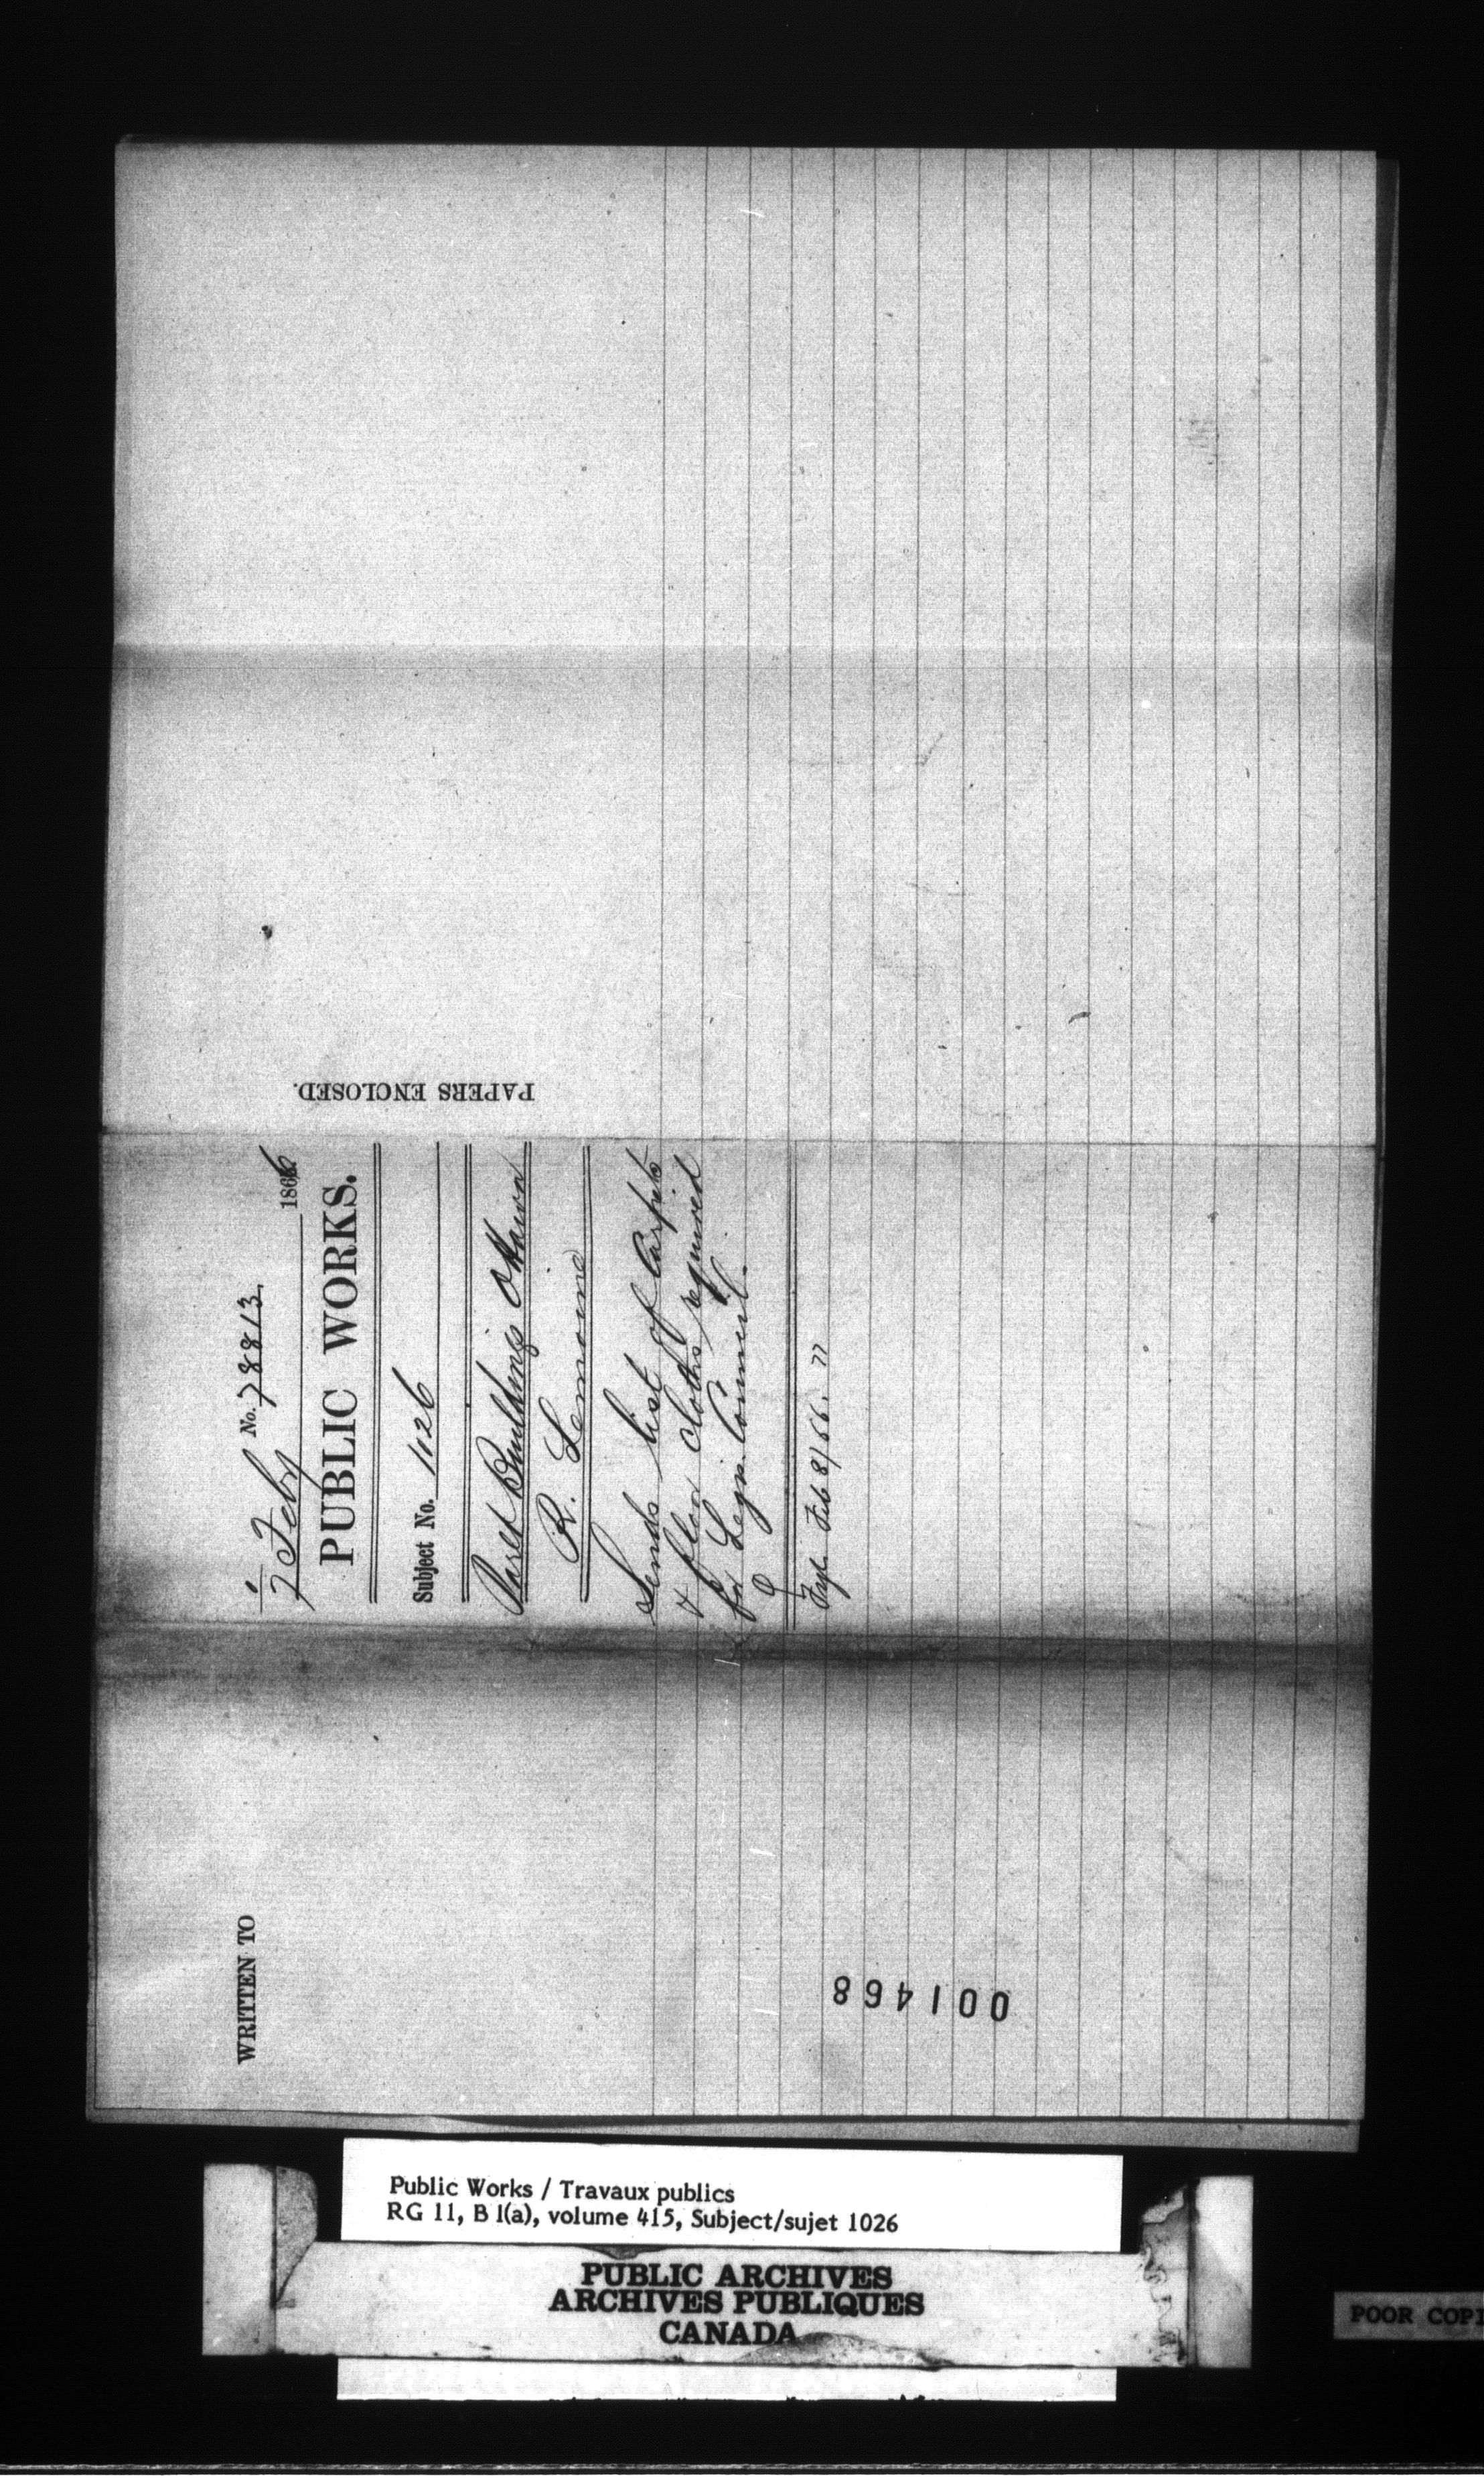 No. 78813.
7 Feby 1866
PUBLIC WORKS.
Subject No. 1026
Parlt Buildings Ottawa
R. Lemoine
Sends list of Carpets
& floor cloths required
for Legis. Council.
Feb 8/66. 77
PAPERS ENCLOSED.
WRITTEN TO
001468
Public Works / Travaux publics
RG 11, B 1(a), volume 415, Subject/sujet 1026
PUBLIC ARCHIVES
ARCHIVES PUBLIQUES
CANADA
POOR COPI